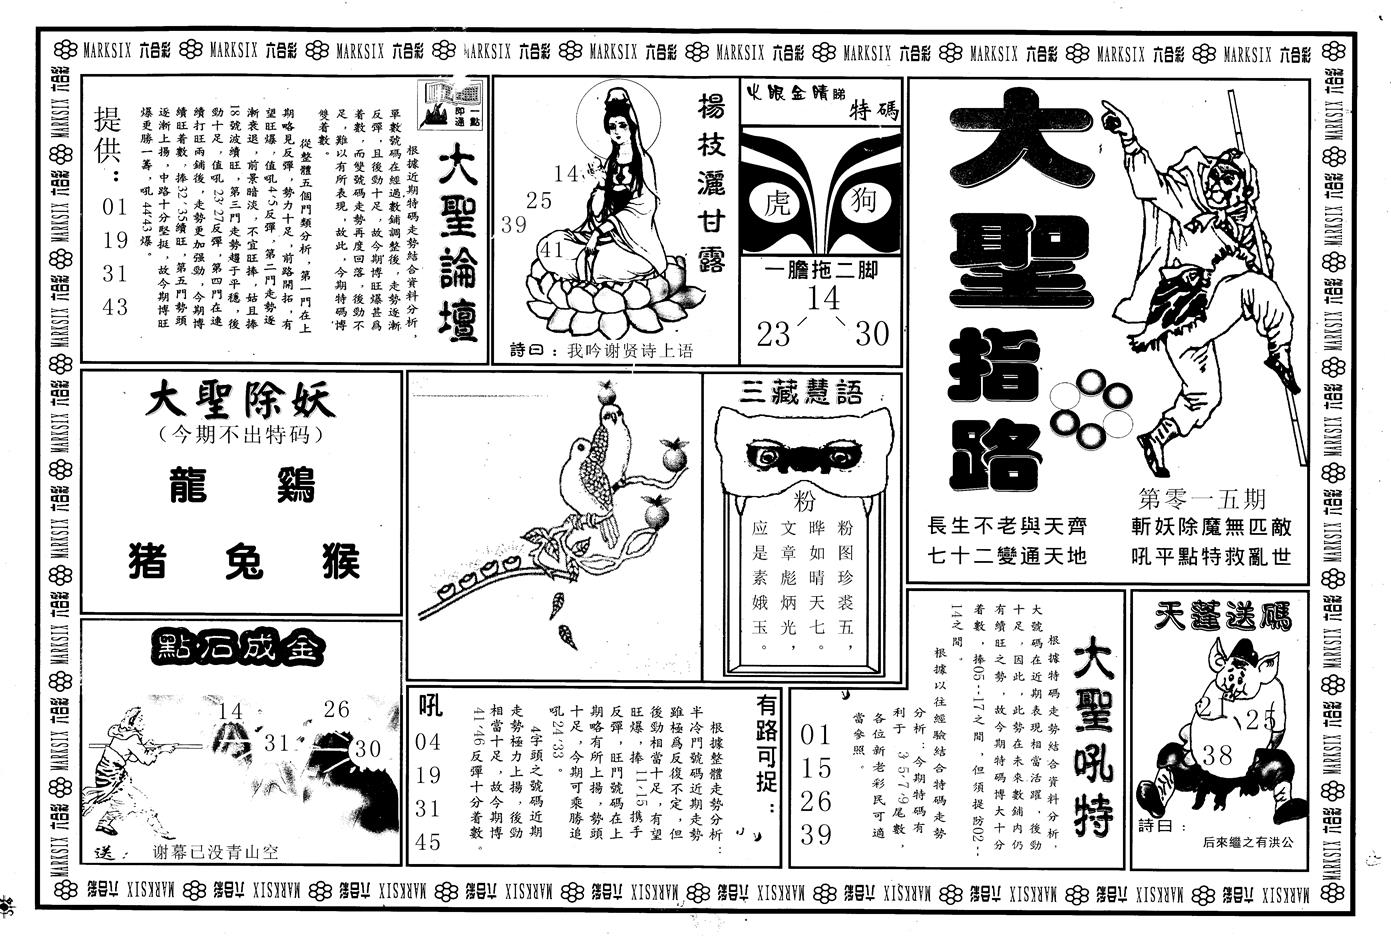 MARKSIX 六合彩 MARKSIX 六合彩 MARKSIX 六合彩 MARKSIX 六合彩 MARKSIX 六合彩 MARKSIX 六合彩 MARKSIX 六合彩 MARKSIX 六合彩 MARKSIX 六合彩 MARKSIX 六合彩
大聖指路
第零一五期
長生不老與天齊
七十二變通天地
斬妖除魔無匹敵
吼平點特救亂世
火眼金睛睇
特碼
虎
狗
一膽拖二脚
14
23
30
楊枝灑甘露
14
25
39
41
詩曰：我吟谢贤诗上语
一點即通
大聖論壇
根據近期特碼走勢結合資料分析，
單數號碼在經過數鋪調整後，走勢逐漸
反彈，且後勁十足，故今期博旺爆甚爲
着數，而雙號碼走勢再度回落，後勁不
足，難以有所表現，故此，今期特碼博
雙着數。
從整體五個門類分析，第一門在上
期略見反彈，勢力十足，前路開拓，有
望旺爆，值吼4·5反彈，第二門走勢逐
漸衰退，前景暗淡，不宜旺捧，姑且捧
18號波續旺，第三門走勢趨于平穩，後
勁十足，值吼23·27反彈，第四門在連
續打旺兩鋪後，走勢更加强勁，今期博
續旺着數，捧32·35續旺，第五門勢頭
逐漸上揚，中路十分堅挺，故今期博旺
爆更勝一籌，吼44·43爆。
提供：
01
19
31
43
大聖除妖
（今期不出特码）
龍
鷄
猪
兔
猴
三藏慧語
粉
粉图珍裘五，
晔如晴天七。
文章彪炳光，
应是素娥玉。
點石成金
14
26
31
30
送：谢幕已没青山空
有路可捉：
根據整體走勢分析：
半冷門號碼近期走勢
雖極爲反復不定，但
後勁相當十足，有望
旺爆，捧11·15携手
反彈，旺門號碼在上
期略有所上揚，勢頭
十足，今期可乘勝追
吼24·33。
4字頭之號碼近期
走勢極力上揚，後勁
相當十足，故今期博
41·46反彈十分着數。
吼
04
19
31
45
大聖吼特
根據特碼走勢結合資料分析，
大號碼在近期表現相當活躍，後勁
十足，因此，此勢在未來數鋪内仍
有續旺之勢，故今期特碼博大十分
着數，捧05--17之間，但須提防02--
14之間。
根據以往經驗結合特碼走勢
分析：今期特碼有
利于 3·5·7·9尾數，
各位新老彩民可適
當參照。
01
15
26
39
天蓬送碼
25
38
詩曰：
后來繼之有洪公